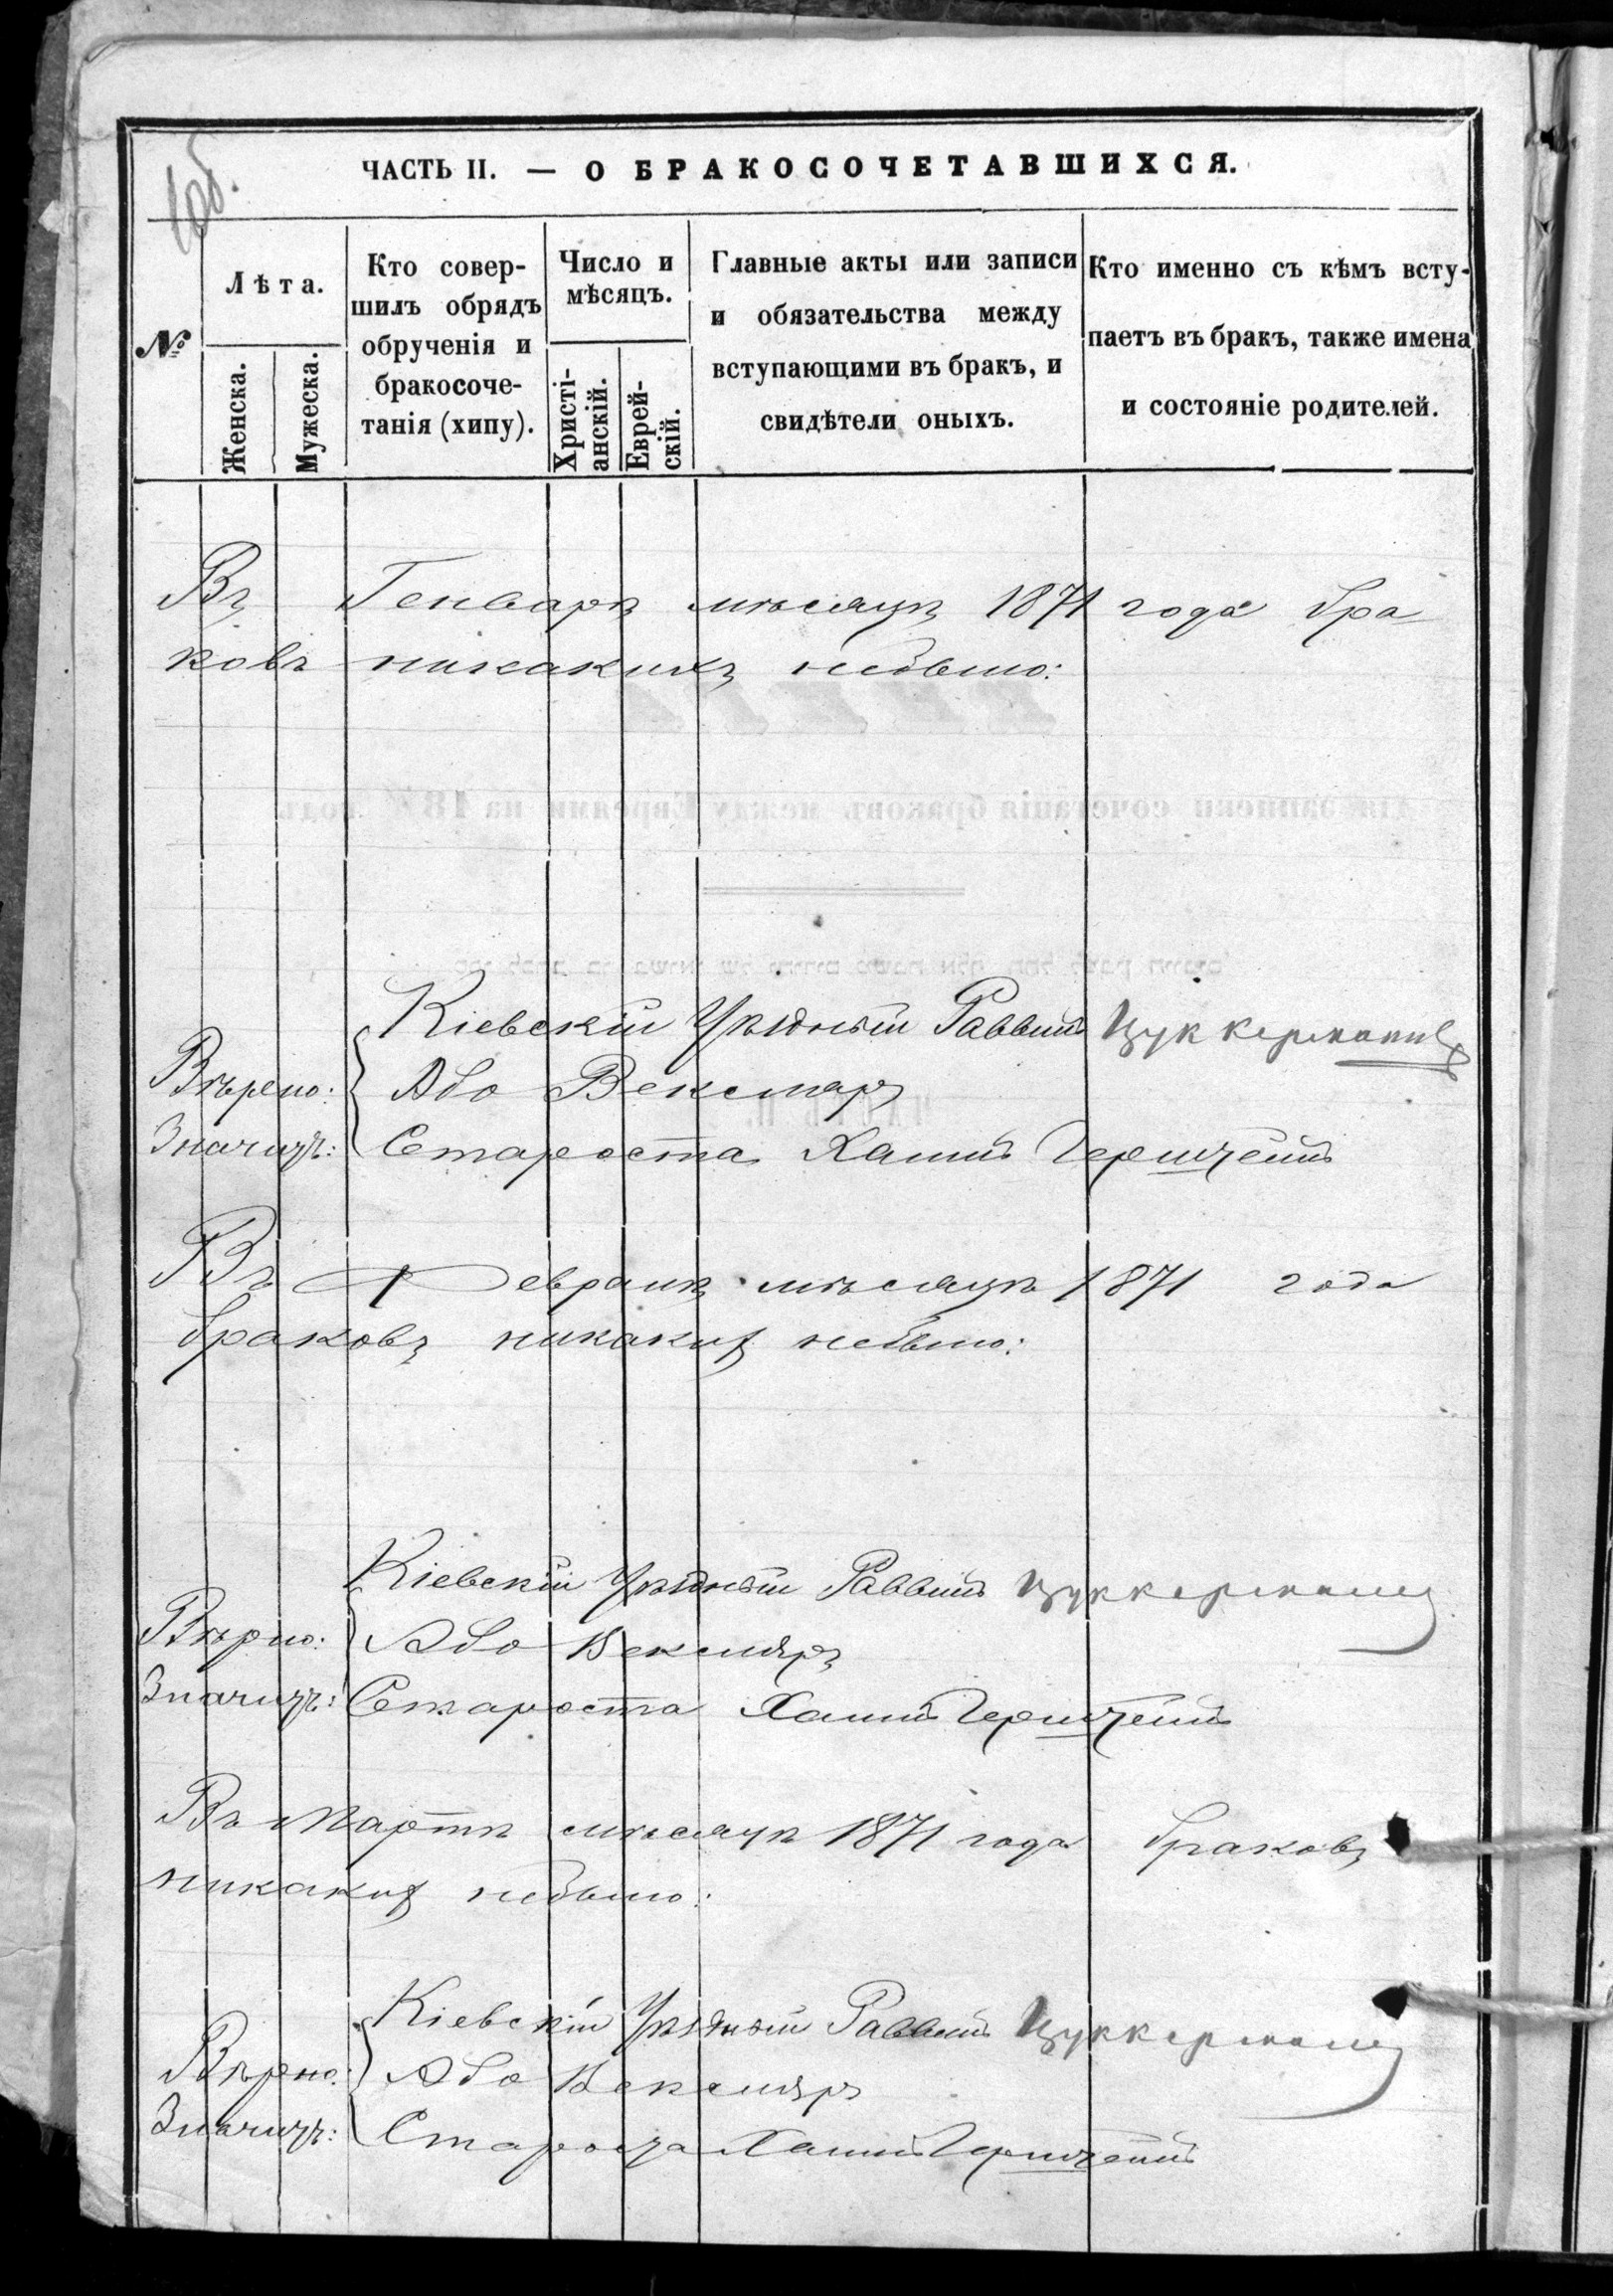 ЧАСТЬ II. — О БРАКОСОЧЕТАВШИХСЯ.
№
Лѣта.
Женска.
Мужеска.
Кто совер-
шилъ обрядъ
обрученія и
бракосоче-
танія (хипу).
Число и
мѣсяцъ.
Христі-
анскій.
Еврей-
скій.
Главные акты или записи
и обязательства между
вступающими въ бракъ, и
свидѣтели оныхъ.
Кто именно съ кѣмъ всту-
паетъ въ бракъ, также имена
и состояніе родителей.
Въ Генварѣ мѣсяцѣ 1871 года бра
ковъ никакихъ небыло:
Кіевскій Уѣздный Раввинъ Цуккерманъ
Вѣрено: Або Векслеръ
Значитъ: Староста Хаимъ
Въ Февралѣ мѣсяцѣ 1871 года
браковъ никакихъ небыло:
Кіевскій Уѣздный Раввинъ Цуккерманъ
Вѣрно: Або Векслеръ
Значитъ: Староста Хаимъ
Въ Мартѣ мѣсяцѣ 1871 года браковъ
никакихъ небыло:
Кіевскій Уѣздный Раввинъ Цуккерманъ
Вѣрено: Або Векслеръ
Значитъ: Староста Хаимъ